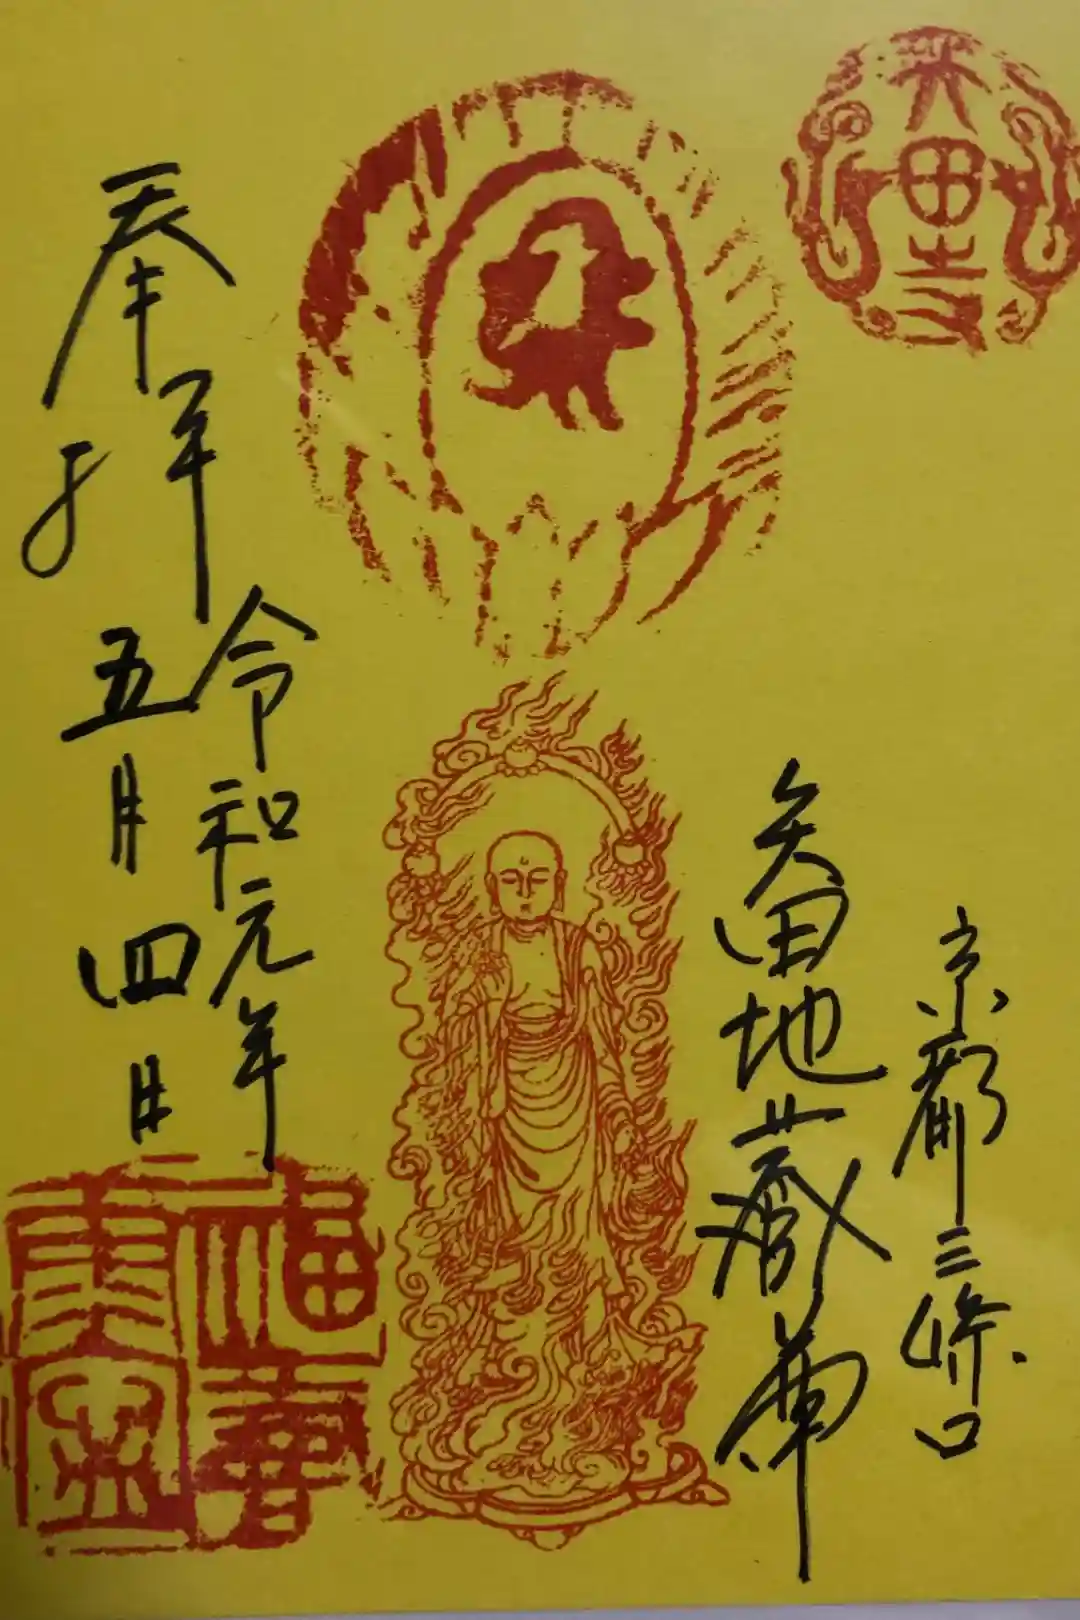 矢田寺
京都三條口
矢田地蔵尊
令和元年
五月四日
奉拝